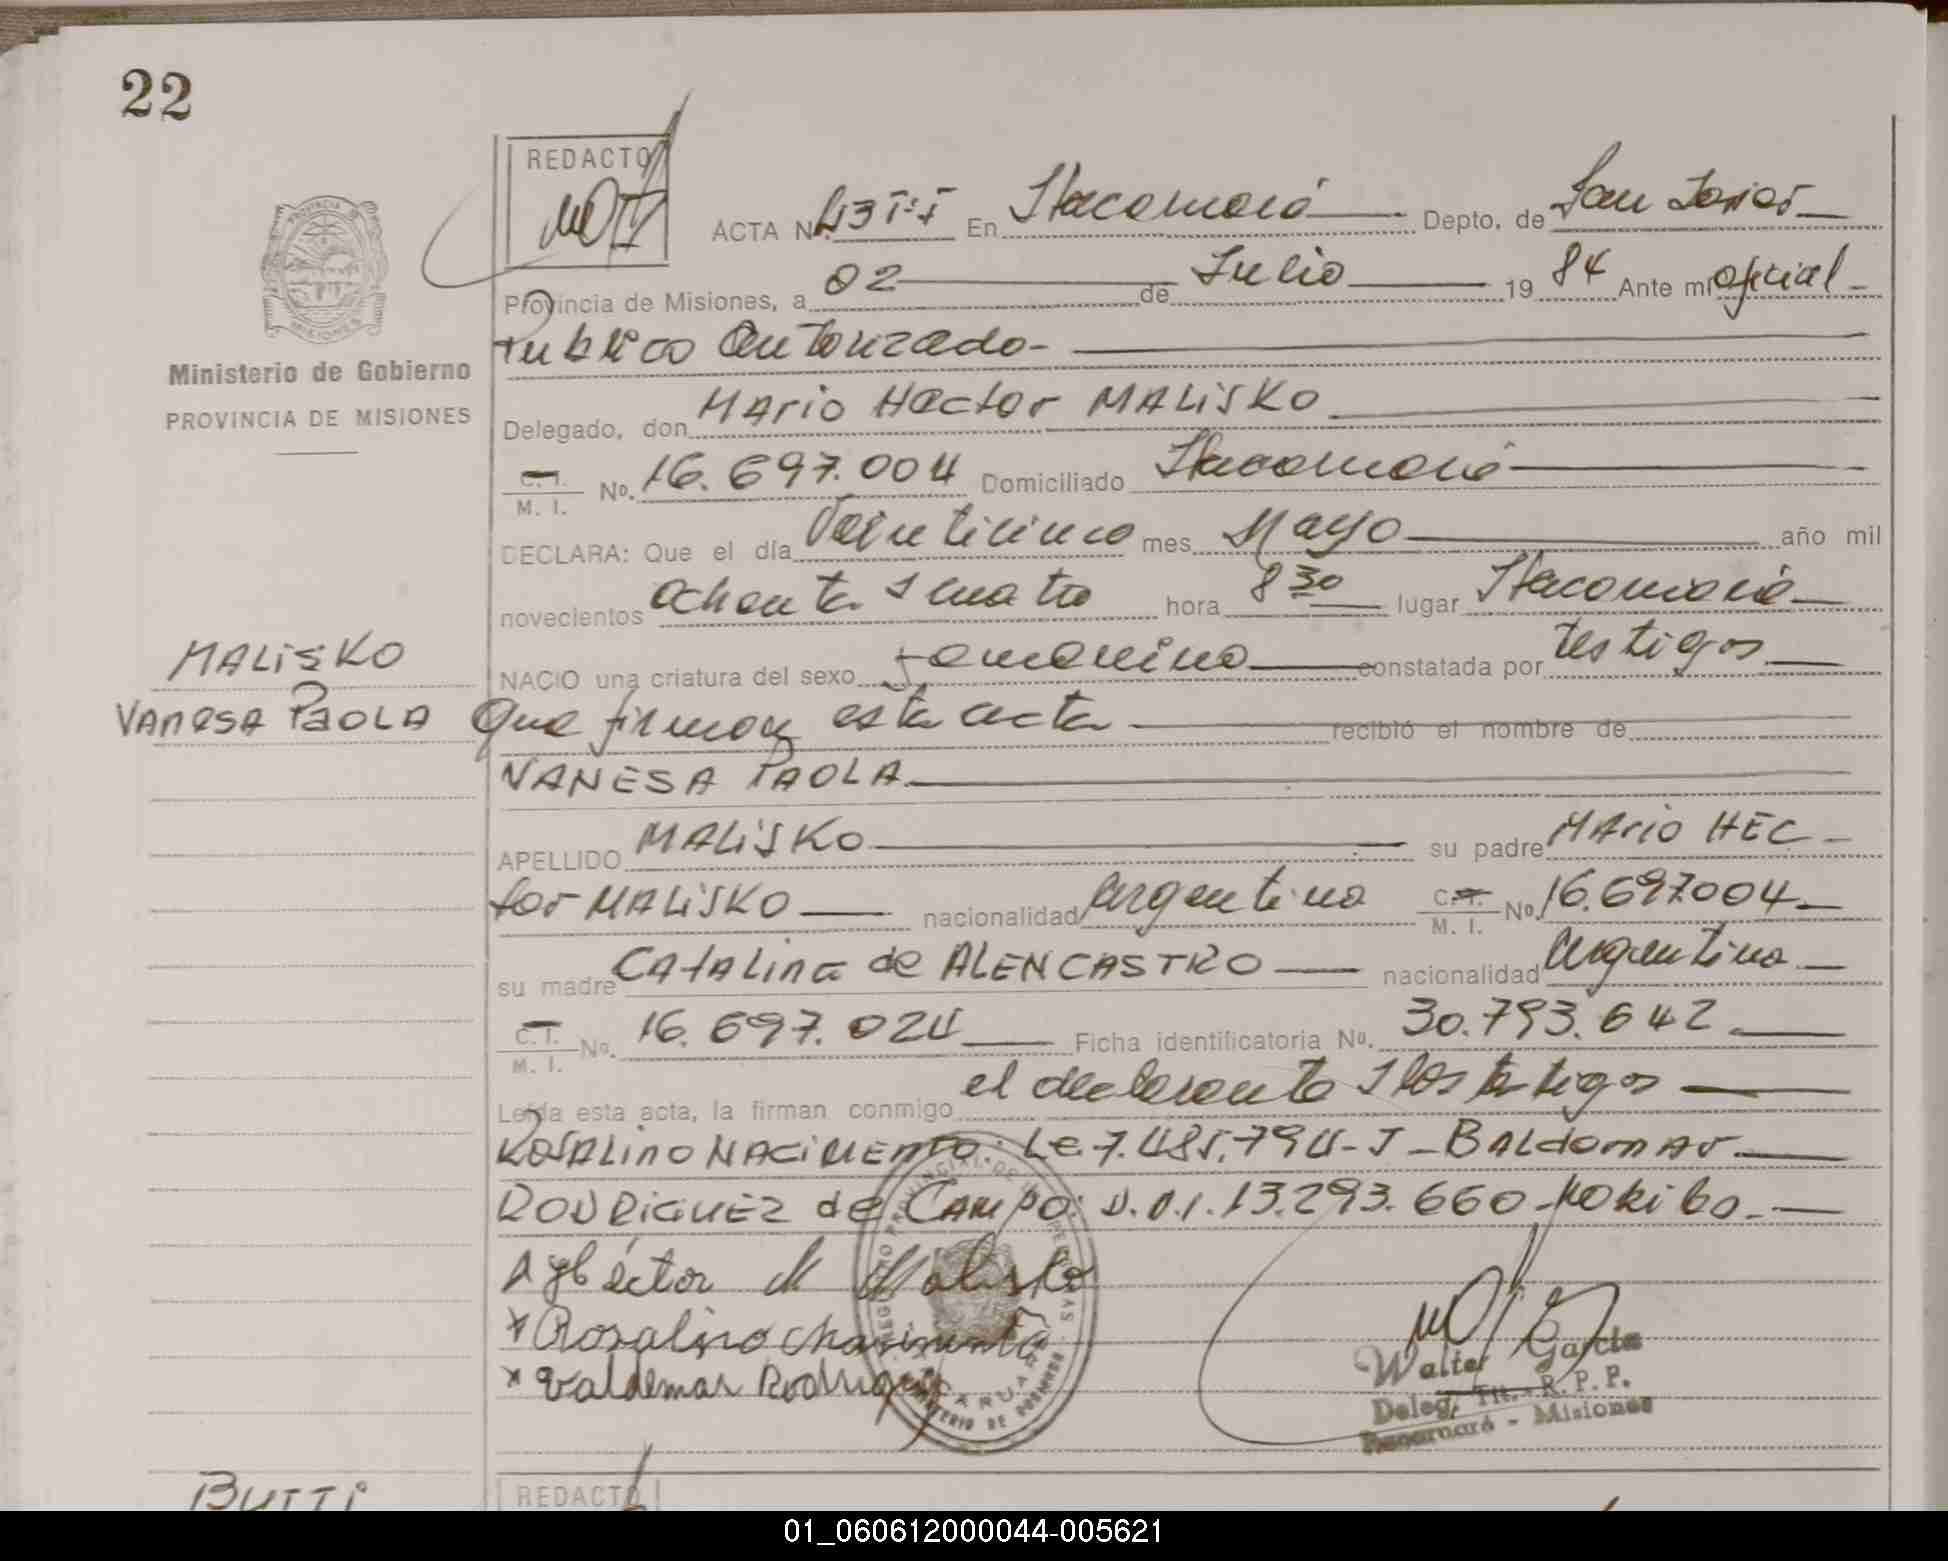 22
REDACTO
ACTA Nº. 43 T:I En Itacaruaré Depto, de San Javier
Provincia de Misiones, a 02 de Julio 19 84 Ante mi oficial
Publico Autorizado
Delegado, don Mario Hector MALISKO
C. I. M. I. No. 16.697.004 Domiciliado Itacaruaré
DECLARA: Que el día Veinticinco mes Mayo año mil
novecientos ochenta y cuatro hora 8 30 lugar Itacaruaré
NACIO una criatura del sexo femenino constatada por testigos
que firman esta acta recibió el nombre de
VANESA PAOLA
APELLIDO MALISKO su padre MARIO HEC
tor MALISKO nacionalidad Argentina C. I. M. I. No. 16.697.004
su madre CATALINA de ALENCASTRO nacionalidad Argentina
C. I. M. I. No. 16.697.024 Ficha identificatoria No. 30.793.642
Leída esta acta, la firman conmigo el declarante y los testigos
ROSALINO NACIMENTO: Le. 7.485.794-J-BALDOMAR
RODRIGUEZ de CAMPO: D.N.I. 13.293.660
Héctor M Malisko
x Rosalino
x Valdemar Rodrigue
Walter García
Deleg. Tit. - R. P. P.
Itacaruaré - Misiones
REGISTRO PROVINCIAL DE LAS PERSONAS
ITACARUARE
MINISTERIO DE GOBIERNO
PROVINCIA DE MISIONES
Ministerio de Gobierno
PROVINCIA DE MISIONES
MALISKO
VANESA PAOLA
BUTTI
REDACTO
01_060612000044-005621